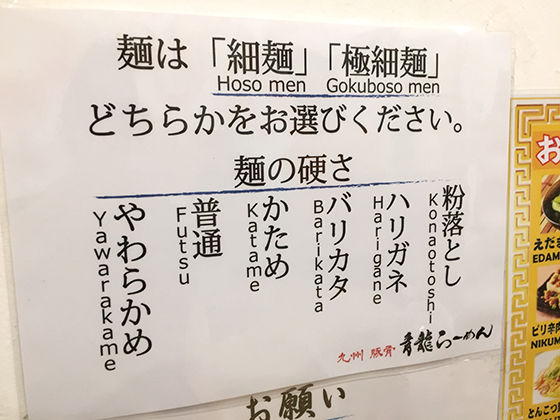 麺は「細麺」「極細麺」
Hoso men Gokuboso men
どちらかをお選びください。
麺の硬さ
粉落とし
Konaotoshi
ハリガネ
Harigane
バリカタ
Barikata
かため
Katame
普通
Futsu
やわらかめ
Yawarakame
九州 豚骨 青龍らーめん
お願い
お
えだま
EDAM
ピリ辛肉
NIKUM
とんこつ